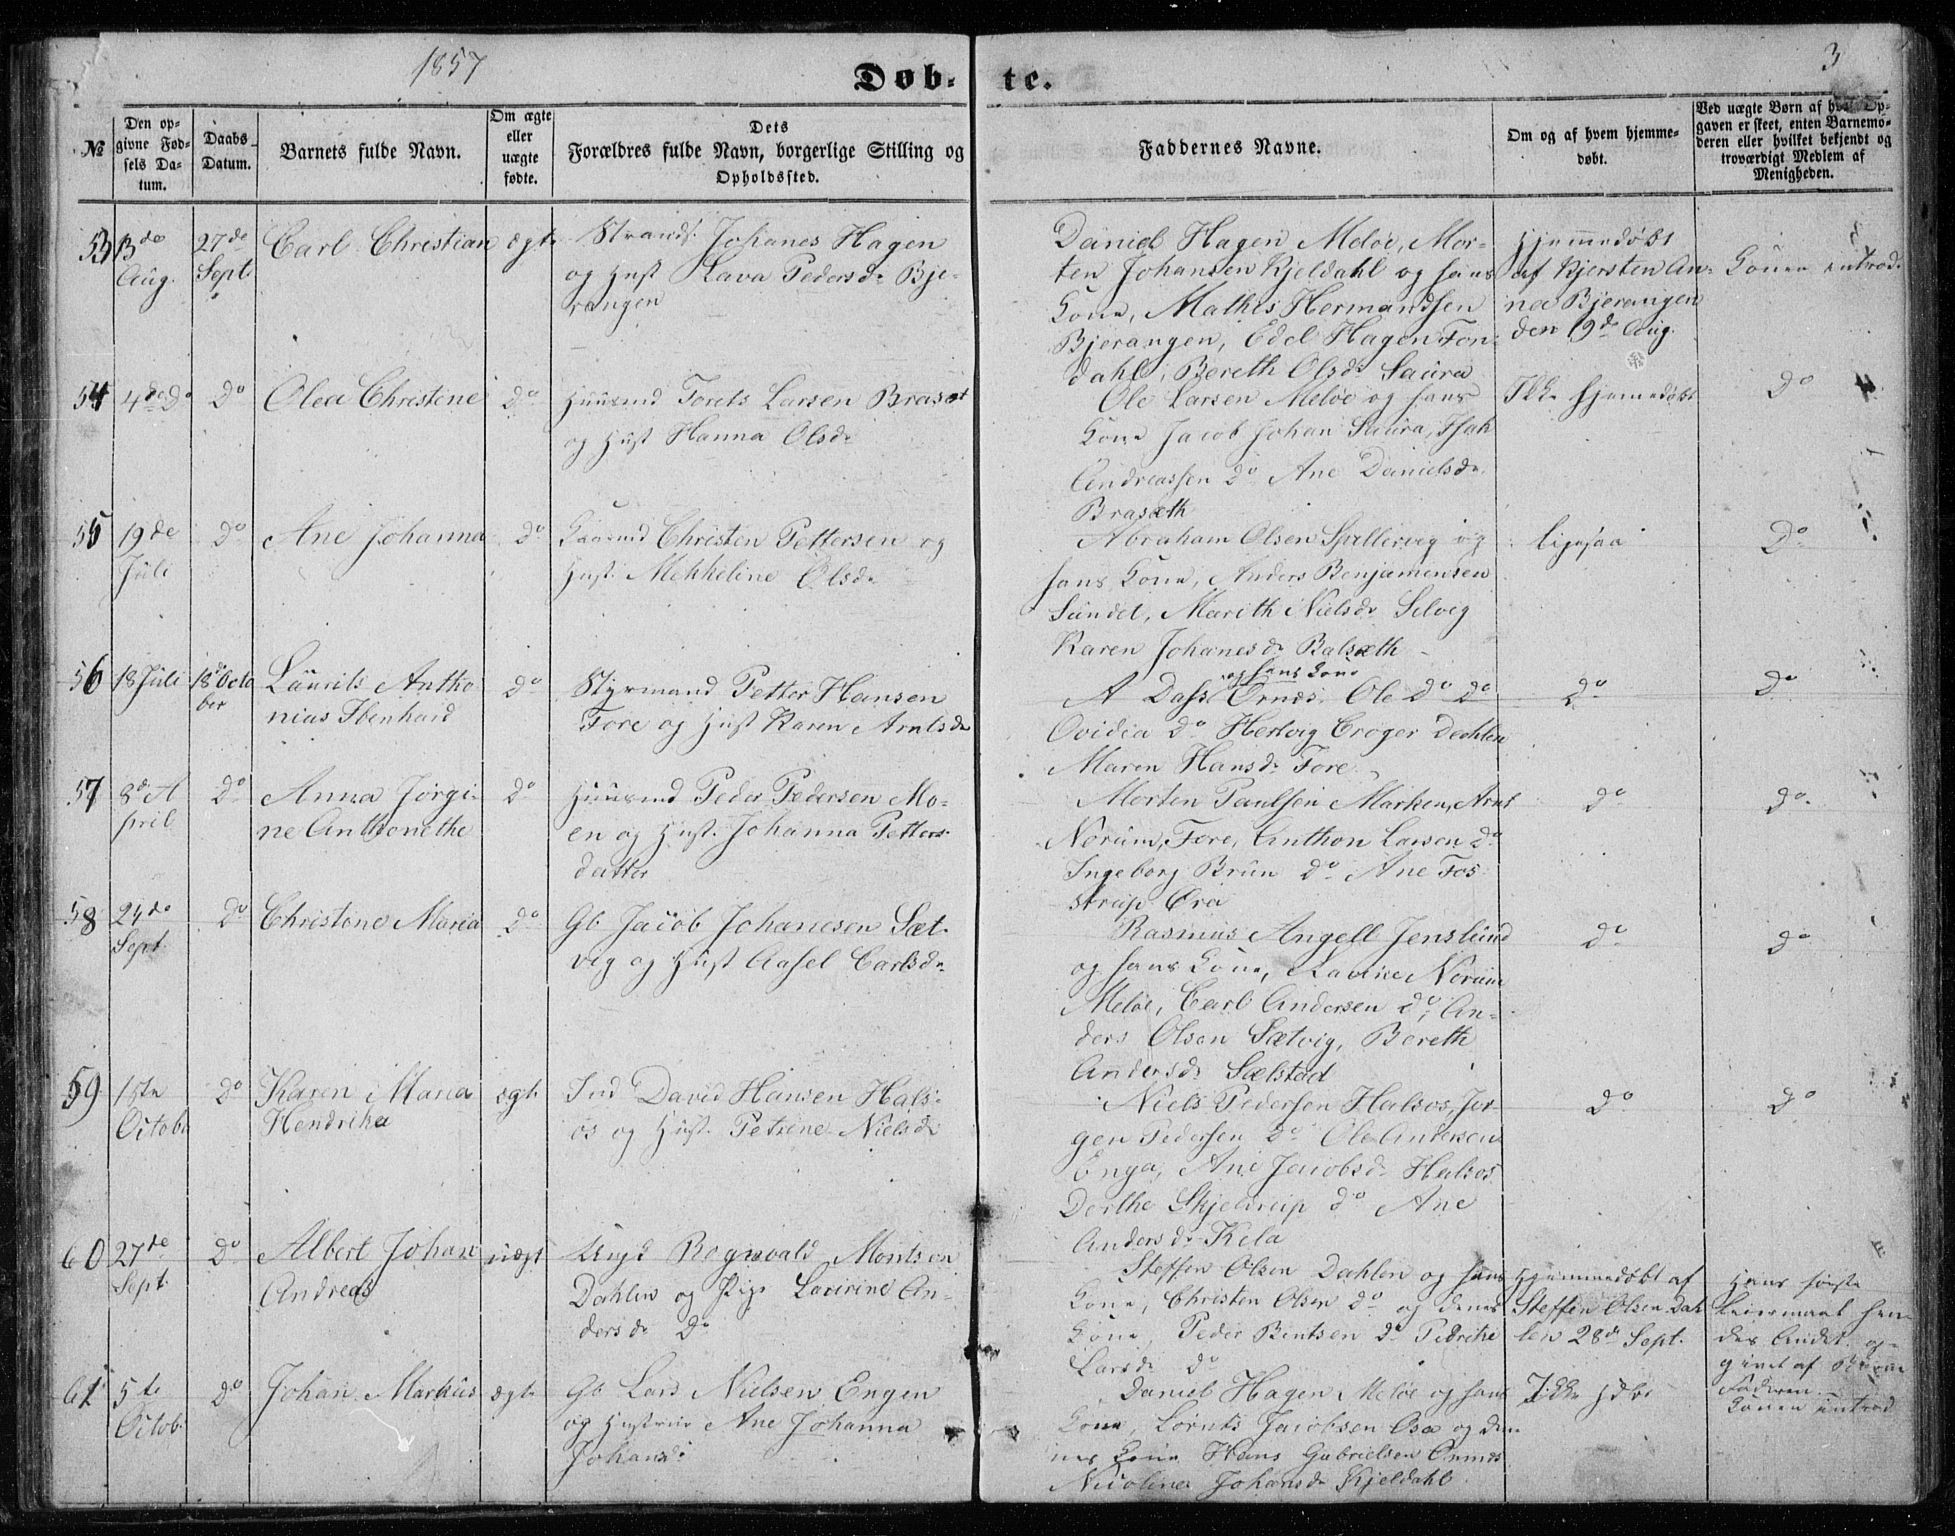 1857
Døb-
te.
3
№
Den op-
givne Fød-
sels Da-
tum.
Daabs-
Datum.
Barnets fulde Navn.
Om ægte
eller
uægte
fødte.
Dets
Forældres fulde Navn, borgerlige Stilling og
Opholdssted.
Faddernes Navne.
Om og af hvem hjemme-
døbt.
Ved uægte Børn af hvem Op-
gaven er skeet, enten Barnemo-
deren eller hvilket bekjendt og
troværdigt Medlem af
Menigheden.
53
13de
Aug.
27de
Sept.
Carl Christian
ægte
Strands. Johanes Hagen
og Hust Lava Pedersdr Bje-
rangen
Daniel Hagen Meløe, Mor-
ten Johansen Kjeldahl og hans
Kone, Mathis Hermandsen
Bjerangen, Edel Hagen Fon-
dahl, Bereth Olsdr Saura
Hjemmedøbt
af Kjersten An-
nea Bjerangen
den 19de Aug.
Konen introd.
54
4de Do
Do
Olea Christine
Do
Huusmd Torets Larsen Brasæt
og Hust Hanna Olsdr
Ole Larsen Meløe og hans
Kone Jacob Johan Saura, Isak
Andreassen Do Ane Danielsdr
Brasæth
Ikke hjemedøbt
Do
55
19de
Juli
Do
Ane Johanna
Do
Christen Pettersen og
Hust. Mekkeline Olsdr
Abraham Olsen Spillervig og
hans Kone, Anders Benjaminsen
Sundet, Marith Nielsdr Selvig
Karen Johanesdr Balsæth
ligesaa
Do
56
18 Juli
18de Octo
ber
Laurits Antho
nius Ibenhard
Do
Styrmand Petter Hansen
Fore og Hust Karen Arntsdr
og hans Kone
A Dass Ørnes. Ole Do Do
Ovidia Do Hertvig Crøger Dahlen
Maren Hansdr Fore
Do
Do
57
8de A
pril
Do
Anna Jørgi-
ne Anthonethe
Do
Huusmd Peder Pedersen Mo-
en og Hust. Johanna Petters-
datter
Morten Paulsen Marken, Arnt
Norum, Fore, Anthon Larsen Do
Ingeborg Brun Do Ane Fos-
strup Øra
Do
Do
58
24de
Sept.
Do
Christine Maria
Do
Gb Jacob Johanesen Sæt-
vig og Hust Aasel Carlsdr
Rasmus Angell Jenslund
og hans Kone, Lavine Norum
Meløe, Carl Andersen Do, An-
ders Olsen Sætvig, Bereth
Andersdr Sælstad
Do
Do
59
15de
Octob.
Do
Karen Maria
Hendrikea
ægte
Ind David Hansen Hals-
os og Hust. Petrine Nielsdr
Niels Pedersen Halsos, Jør-
gen Pedersen Do Ole Andersen
Enga, Ane Jacobsdr Halsos
Dorthe Skjeldrup Do Ane
Andersdr Kela
Do
Do
60
27de
Sept.
Do
Albert Johan
Andreas
uægt
Ungk Rognvald Montsen
Dahlen og Pige Lovirine An-
dersdr Do
Steffen Olsen Dahlen og hans
Kone, Christen Olsen Do og dennes
Kone, Peder Bentsen Do Pedrike
Larsdr Do
Hjemmedøbt af
Steffen Olsen Dah
len 28de Sept.
Hans første
Leiermaal hen-
des Andet op-
givet af Barne
Faderen.
61
5te
Octob.
Do
Johan Markus
ægte
Gb Lars Nielsen Engen
og Hustrue Ane Johanna
Johansdr
Daniel Hagen Meløe og hans
Kone, Lornts Jacobsen Osa og den-
nes Kone Hans Gabrielsen Ørnes
Nicolinea Johansdr Kjeldahl
Ikke hdbt
Konen introd